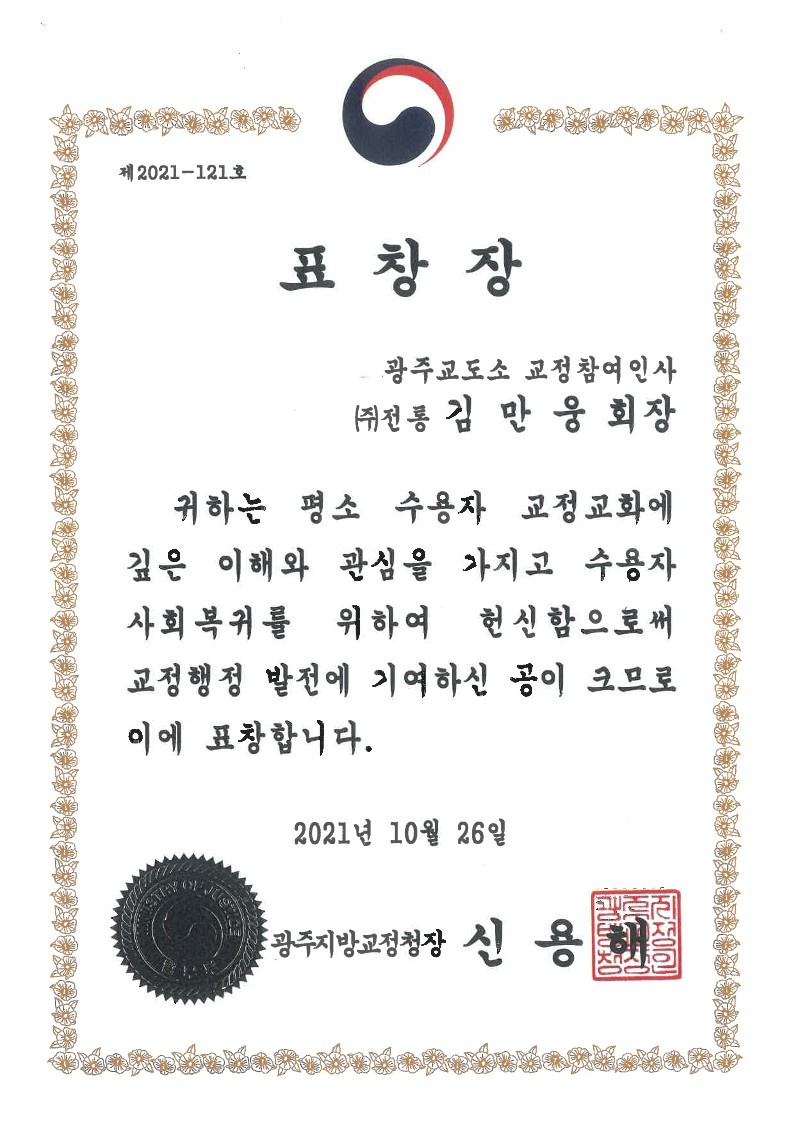 제2021-121호
표 창 장
광주교도소 교정참여인사
(주)전통 김 만 웅 회장
귀하는 평소 수용자 교정교화에
깊은 이해와 관심을 가지고 수용자
사회복귀를 위하여 헌신함으로써
교정행정 발전에 기여하신 공이 크므로
이에 표창합니다.
2021년 10월 26일
MINISTRY OF JUSTICE
광주지방교정청장 신 용 해